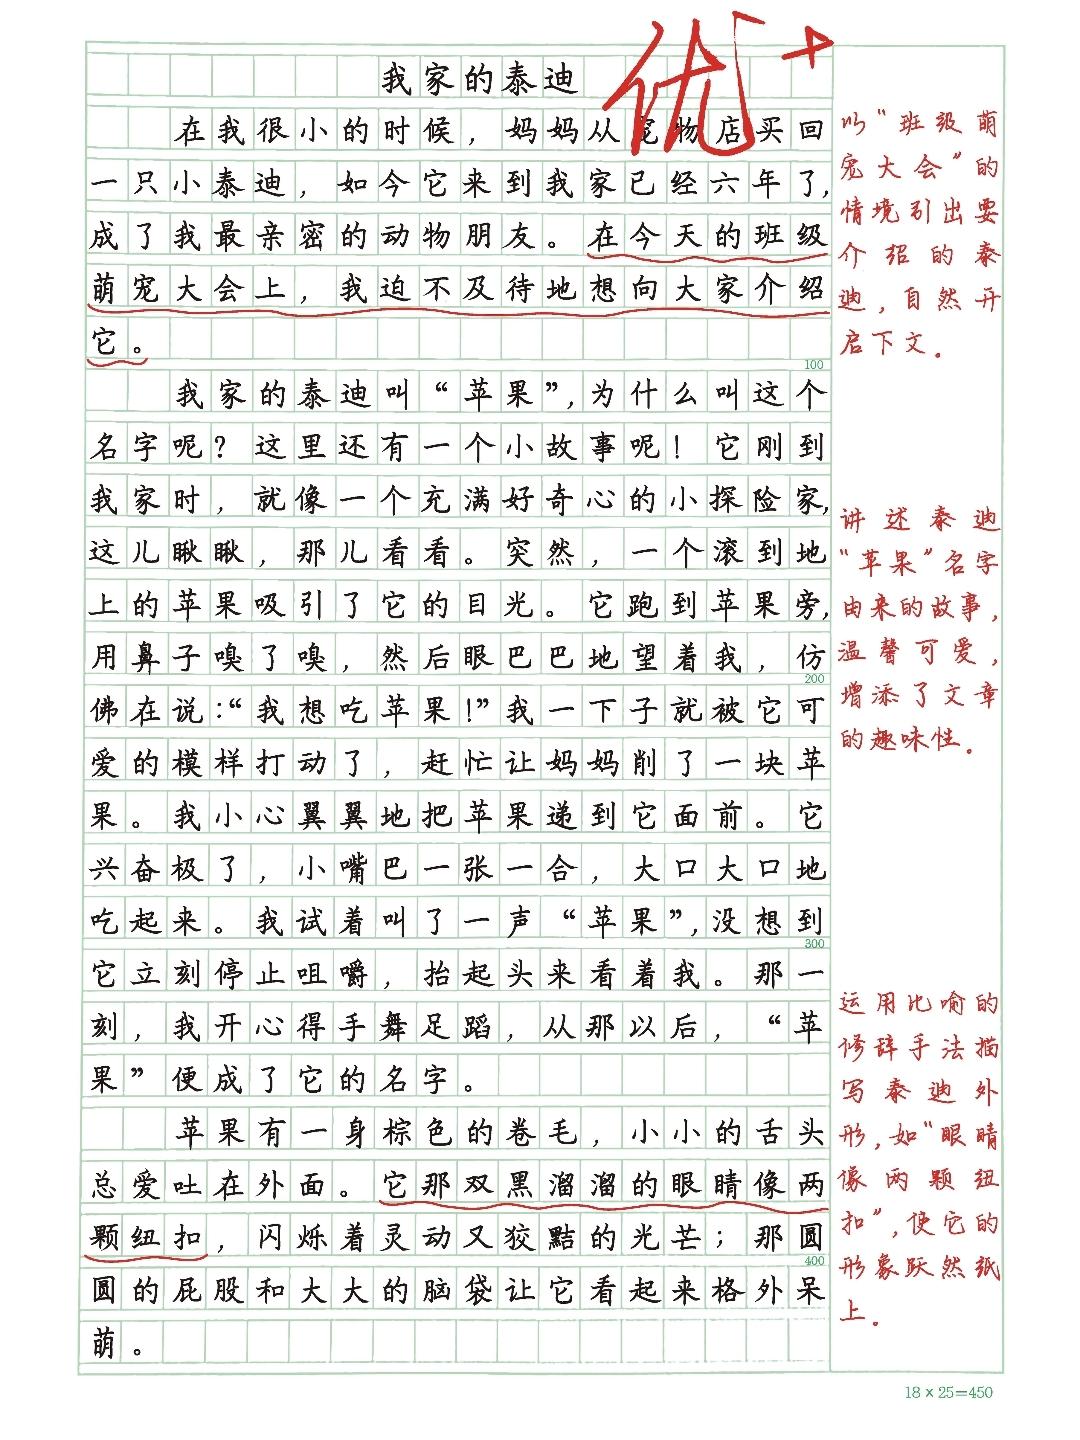 我家的泰迪
优+
在我很小的时候，妈妈从宠物店买回
一只小泰迪，如今它来到我家已经六年了，
成了我最亲密的动物朋友。在今天的班级
萌宠大会上，我迫不及待地想向大家介绍
它。
100
我家的泰迪叫“苹果”，为什么叫这个
名字呢？这里还有一个小故事呢！它刚到
我家时，就像一个充满好奇心的小探险家，
这儿瞅瞅，那儿看看。突然，一个滚到地
上的苹果吸引了它的目光。它跑到苹果旁，
用鼻子嗅了嗅，然后眼巴巴地望着我，仿
200
佛在说：“我想吃苹果！”我一下子就被它可
爱的模样打动了，赶忙让妈妈削了一块苹
果。我小心翼翼地把苹果递到它面前。它
兴奋极了，小嘴巴一张一合，大口大口地
吃起来。我试着叫了一声“苹果”，没想到
300
它立刻停止咀嚼，抬起头来看着我。那一
刻，我开心得手舞足蹈，从那以后，“苹
果”便成了它的名字。
苹果有一身棕色的卷毛，小小的舌头
总爱吐在外面。它那双黑溜溜的眼睛像两
颗纽扣，闪烁着灵动又狡黠的光芒；那圆
400
圆的屁股和大大的脑袋让它看起来格外呆
萌。
以“班级萌
宠大会”的
情境引出要
介绍的泰
迪，自然开
启下文。
讲述泰迪
“苹果”名字
由来的故事，
温馨可爱，
增添了文章
的趣味性。
运用比喻的
修辞手法描
写泰迪外
形，如“眼睛
像两颗纽
扣”，使它的
形象跃然纸
上。
18×25=450